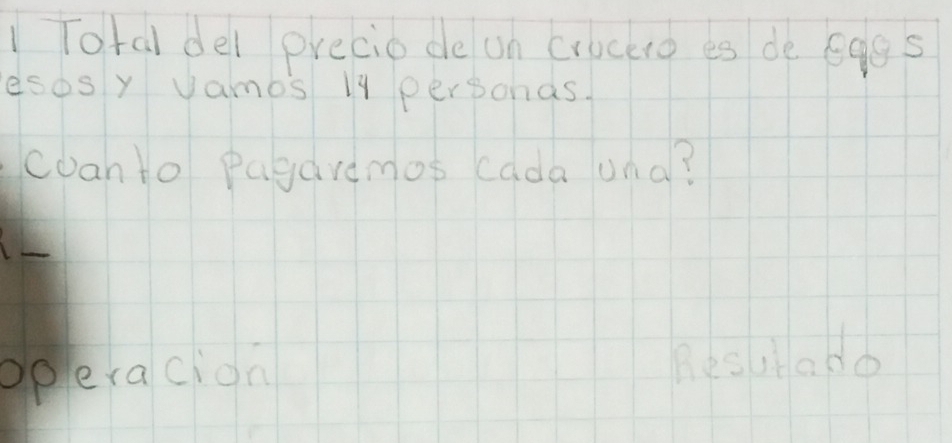 l Total del precio de un crucero es de
esos y vamos 14 personas.
cuanto Pagaremos cada una?
R-
operación Resultado